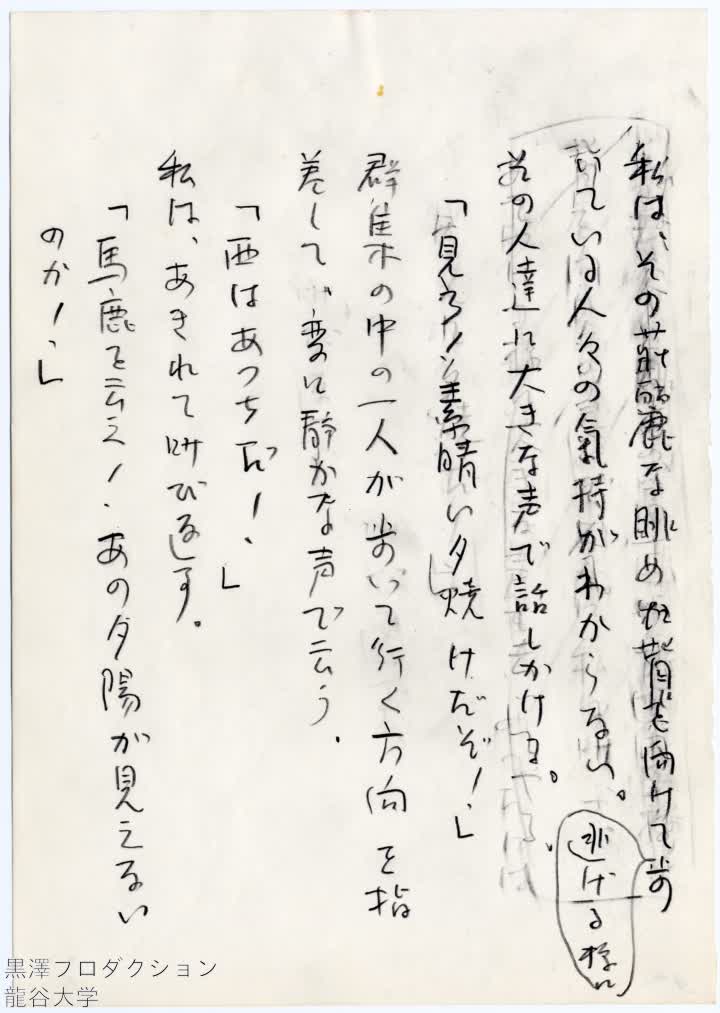 私は、その荘麗な眺めに背を向けて歩
いている人々の氣持がわからない。
逃げる様に
その人達に大きな声で話しかける。
「見ろ！素晴い夕焼けだぞ！」
群集の中の一人が歩いて行く方向を指
差して、変に静かな声で云う。
「西はあっちだ！」
私は、あきれて叫び返す。
「馬鹿を云え！あの夕陽が見えない
のか！」
黒澤プロダクション
龍谷大学